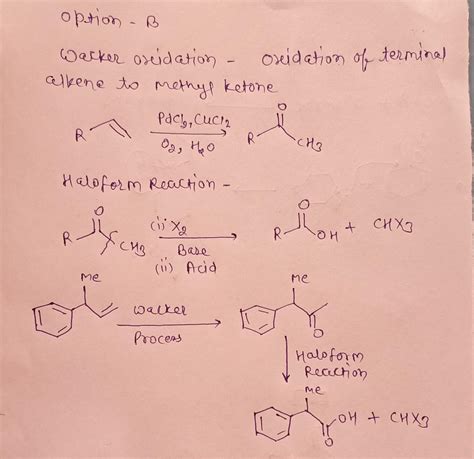 Option - B
Wacker oxidation - Oxidation of terminal
alkene to methyl ketone
R
PdCl2, CuCl2
O2, H2O
O
R
CH3
Haloform Reaction -
O
R
CH3
(i) X2
Base
(ii) Acid
O
R
OH + CHX3
Me
Wacker
Process
Me
O
Haloform
Reaction
Me
OH + CHX3
O